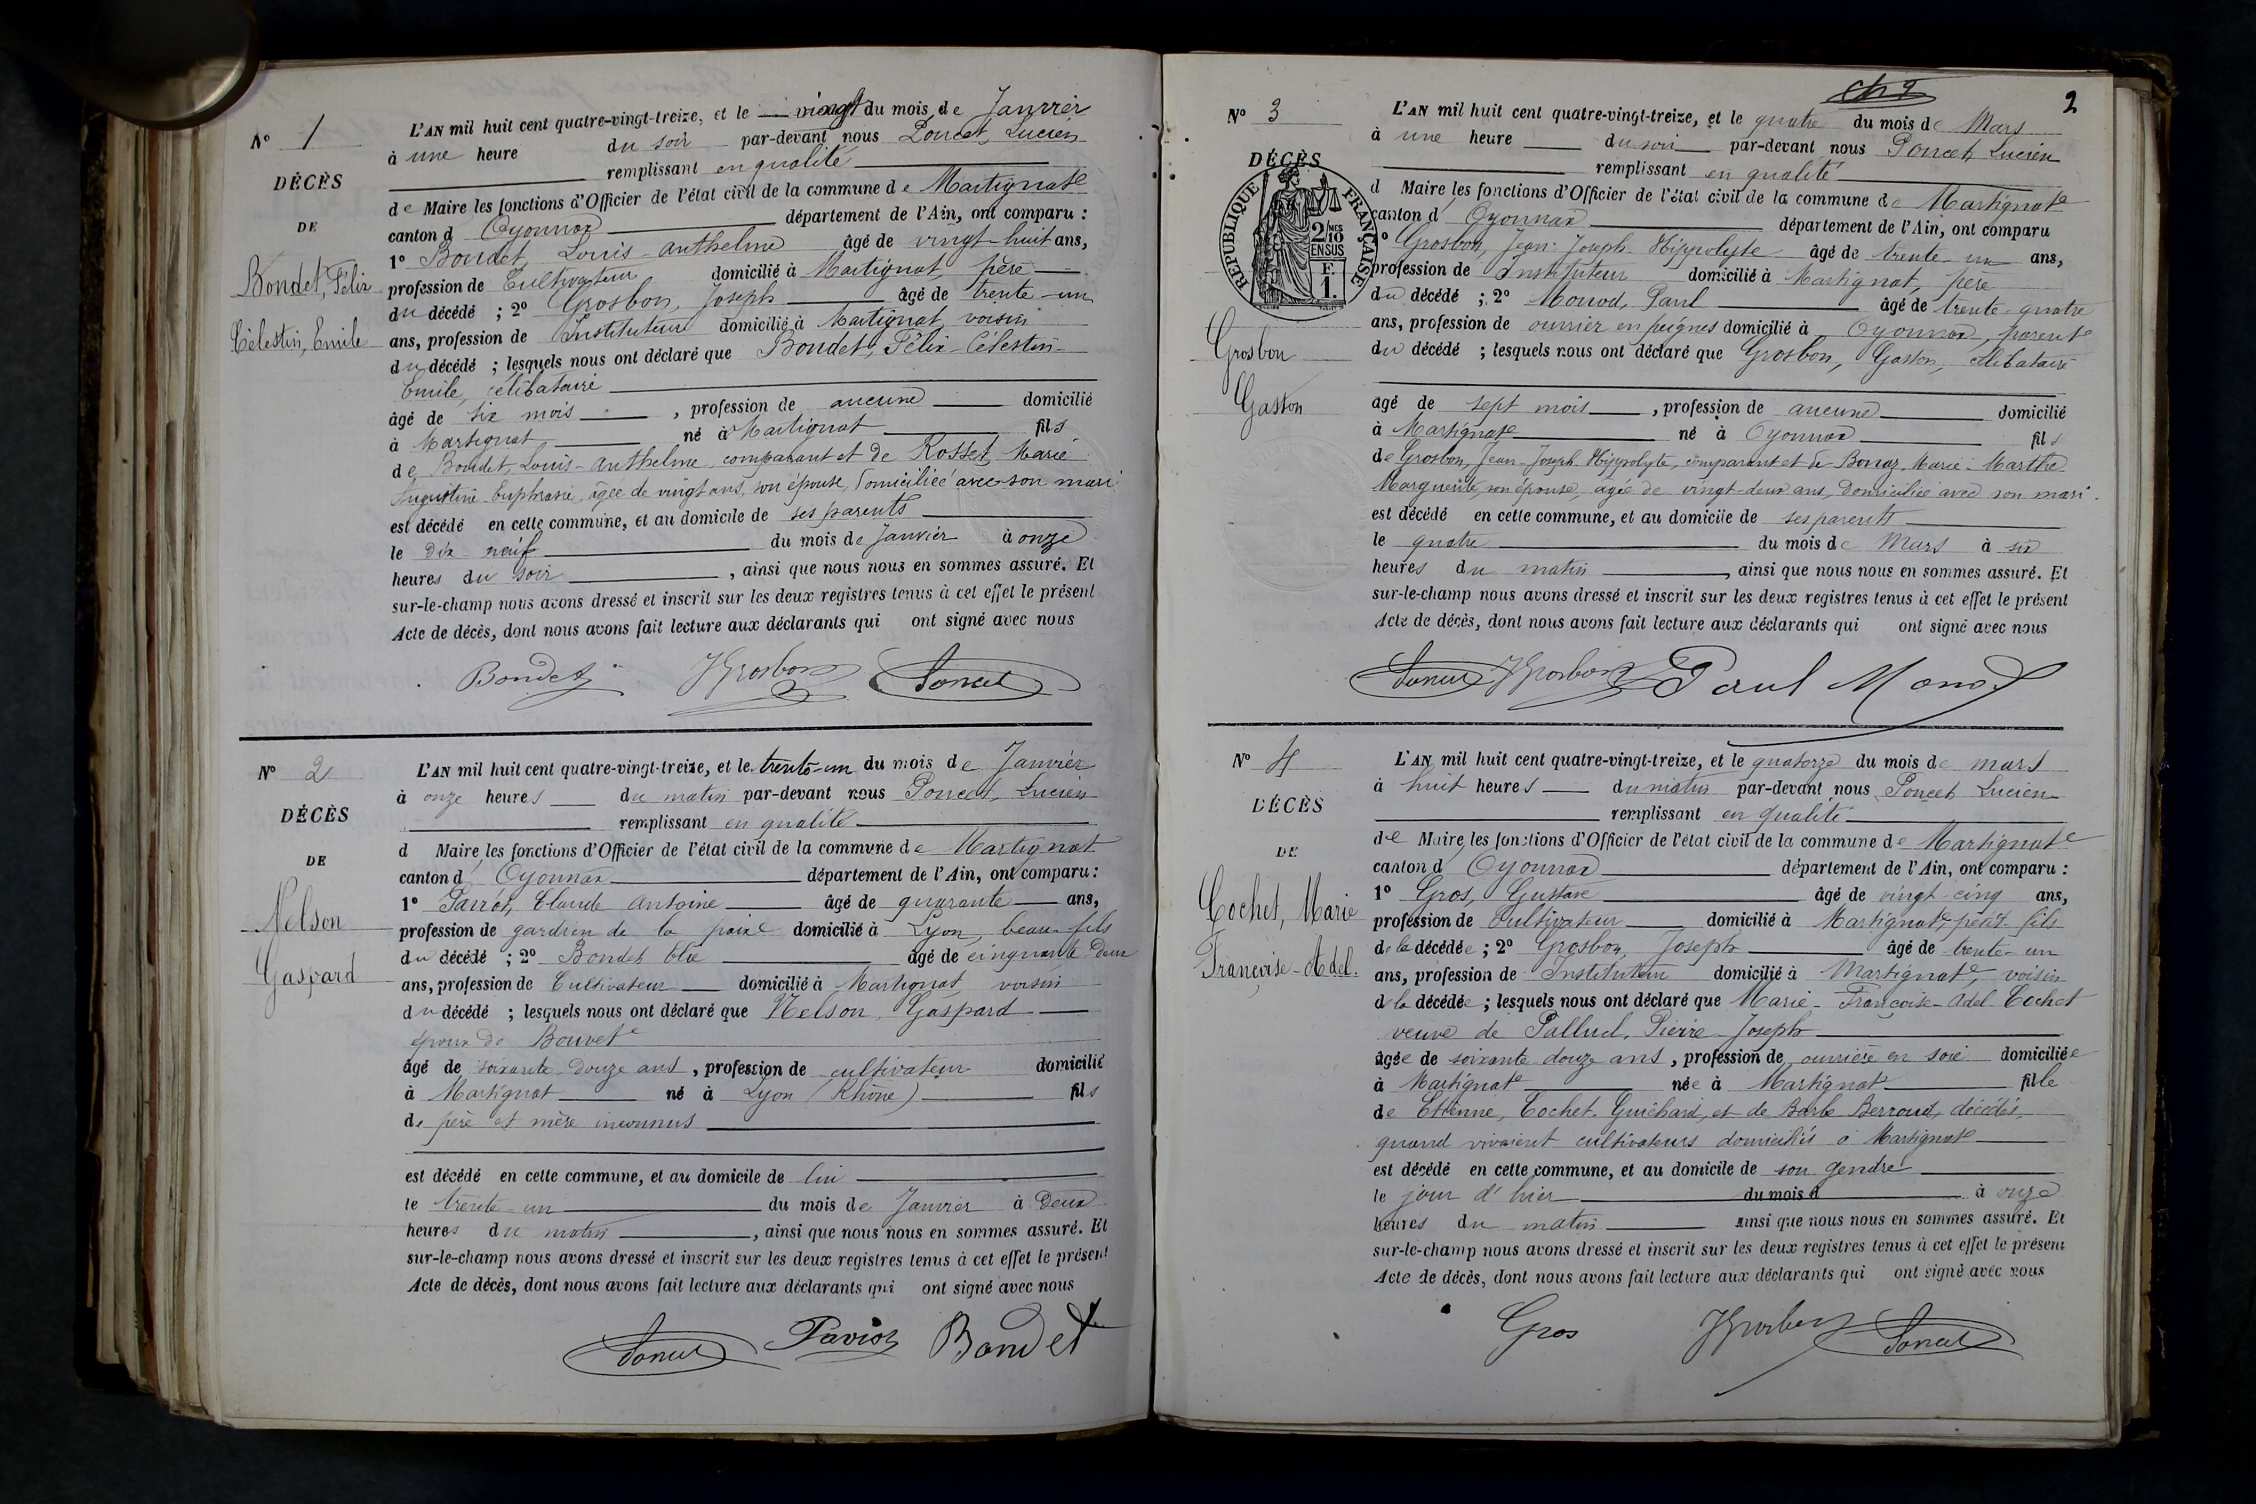 Nº 1
DÉCÈS
DE
Bondet, Félix
Célestin, Emile
L'AN mil huit cent quatre-vingt-treize, et le vingt du mois de Janvier
à une heure du soir par-devant nous Poncet, Lucien
remplissant en qualité
de Maire les fonctions d'Officier de l'état civil de la commune de Martignat
canton d Oyonnax département de l'Ain, ont comparu :
1º Bondet, Louis-Anthelme âgé de vingt-huit ans,
profession de Cultivateur domicilié à Martignat, père
du décédé ; 2º Grosbon, Joseph âgé de trente-un
ans, profession de Instituteur domicilié à Martignat voisin
du décédé ; lesquels nous ont déclaré que Bondet, Félix-Célestin-
Emile, célibataire
âgé de six mois , profession de aucune domicilié
à Martignat né à Martignat fils
de Bondet, Louis-Anthelme, comparant et de Rosset, Marie
Augustine Euphrasie, âgée de vingt ans, son épouse, domiciliée avec son mari
est décédé en cette commune, et au domicile de ses parents
le dix-neuf du mois de Janvier à onze
heures du soir , ainsi que nous nous en sommes assuré. Et
sur-le-champ nous avons dressé et inscrit sur les deux registres tenus à cet effet le présent
Acte de décès, dont nous avons fait lecture aux déclarants qui ont signé avec nous
Bondet JGrosbon Poncet
Nº 2
DÉCÈS
DE
Nelson
Gaspard
L'AN mil huit cent quatre-vingt-treize, et le trente-un du mois de Janvier
à onze heures du matin par-devant nous Poncet, Lucien
remplissant en qualité
d Maire les fonctions d'Officier de l'état civil de la commune de Martignat
canton d Oyonnax département de l'Ain, ont comparu :
1º Claude Antoine âgé de quarante ans,
profession de gardien de la paix domicilié à Lyon, beau-fils
du décédé ; 2º Bondet Elie âgé de cinquante-deux
ans, profession de Cultivateur domicilié à Martignat, voisin
du décédé ; lesquels nous ont déclaré que Nelson, Gaspard
époux de Bouvet
âgé de soixante-douze ans, profession de cultivateur domicilié
à Martignat né à Lyon (Rhône) fils
de père et mère inconnus
est décédé en cette commune, et au domicile de lui
le trente-un du mois de Janvier à deux
heures du matin , ainsi que nous nous en sommes assuré. Et
sur-le-champ nous avons dressé et inscrit sur les deux registres tenus à cet effet le présent
Acte de décès, dont nous avons fait lecture aux déclarants qui ont signé avec nous
Poncet Bondet
2
Nº 3
DÉCÈS
RÉPUBLIQUE FRANÇAISE
2/10 MES
EN SUS
F.
1.
Grosbon
Gaston
L'AN mil huit cent quatre-vingt-treize, et le quatre du mois de Mars
à une heure du soir par-devant nous Poncet, Lucien
remplissant en qualité
d Maire les fonctions d'Officier de l'état civil de la commune de Martignat
canton d Oyonnax département de l'Ain, ont comparu
º Grosbon, Jean-Joseph-Hippolyte âgé de trente-un ans,
profession de Instituteur domicilié à Martignat, père
du décédé ; 2º Monod, Paul âgé de trente-quatre
ans, profession de ouvrier en peignes domicilié à Oyonnax, parent
du décédé ; lesquels nous ont déclaré que Grosbon, Gaston, célibataire
agé de sept mois , profession de aucune domicilié
à Martignat né à Oyonnax fils
de Grosbon, Jean-Joseph-Hippolyte, comparant et de Bonaz, Marie-Marthe
Marguerite, son épouse, agée de vingt-deux ans, domiciliée avec son mari.
est décédé en cette commune, et au domicile de ses parents
le quatre du mois de Mars à six
heures du matin , ainsi que nous nous en sommes assuré. Et
sur-le-champ nous avons dressé et inscrit sur les deux registres tenus à cet effet le présent
Acte de décès, dont nous avons fait lecture aux déclarants qui ont signé avec nous
Poncet JGrosbon Paul Monod
Nº 4
DÉCÈS
DE
Cochet, Marie
Françoise-Adel.
L'AN mil huit cent quatre-vingt-treize, et le quatorze du mois de mars
à huit heures du matin par-devant nous Poncet Lucien
remplissant en qualité
de Maire les fonctions d'Officier de l'état civil de la commune de Martignat
canton d Oyonnax département de l'Ain, ont comparu :
1º Gros, Gustave âgé de vingt-cinq ans,
profession de Cultivateur domicilié à Martignat, petit-fils
de la décédée ; 2º Grosbon, Joseph âgé de trente-un
ans, profession de Instituteur domicilié à Martignat, voisin
d la décédée ; lesquels nous ont déclaré que Marie-Françoise-Adel Cochet
veuve de Palluel, Pierre-Joseph
âgée de soixante douze ans, profession de ouvrière en soie domiciliée
à Martignat née à Martignat fille
de Etienne, Cochet-Guichard, et de Barbe Berroud, décédés,
quand vivaient cultivateurs domiciliés à Martignat
est décédé en cette commune, et au domicile de son gendre
le jour d'hier du mois d à onze
heures du matin ainsi que nous nous en sommes assuré. Et
sur-le-champ nous avons dressé et inscrit sur les deux registres tenus à cet effet le présent
Acte de décès, dont nous avons fait lecture aux déclarants qui ont signé avec nous
Gros JGrosbon Poncet